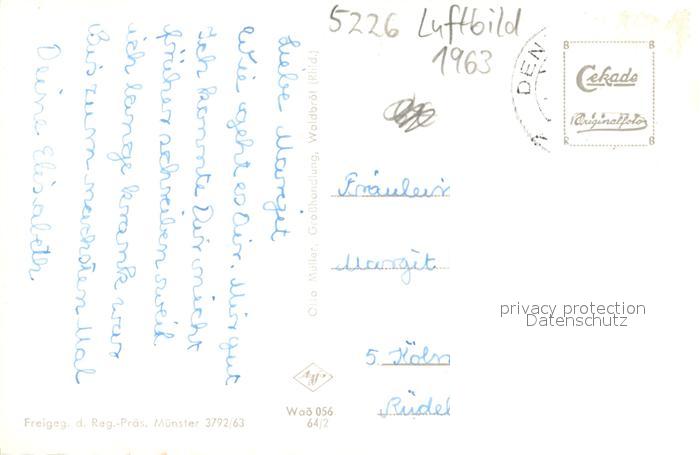 5226 Luftbild
1963
DEN
Cekade
Originalfoto
Liebe Margit
Wie geht es Dir. Mir gut
Ich konnte Dir nicht
früher schreiben weil
ich lange krank war
Bis zum nächsten Mal
Deine Elisabeth.
Otto Müller, Großhandlung, Waldbröl (Rhld.)
Fräulein
Margit
5 Köln
Rüdel
privacy protection
Datenschutz
Agfa
Waö 056
64/2
Freigeg. d. Reg.-Präs. Münster 3792/63